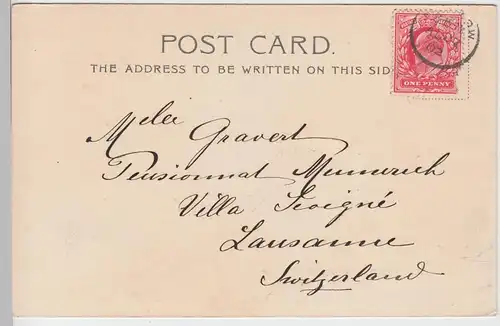 POST CARD.
THE ADDRESS TO BE WRITTEN ON THIS SID
ONE PENNY
Mlle Gravert
Pensionnat Mummrich
Villa Sevigné
Lausanne
Switzerland